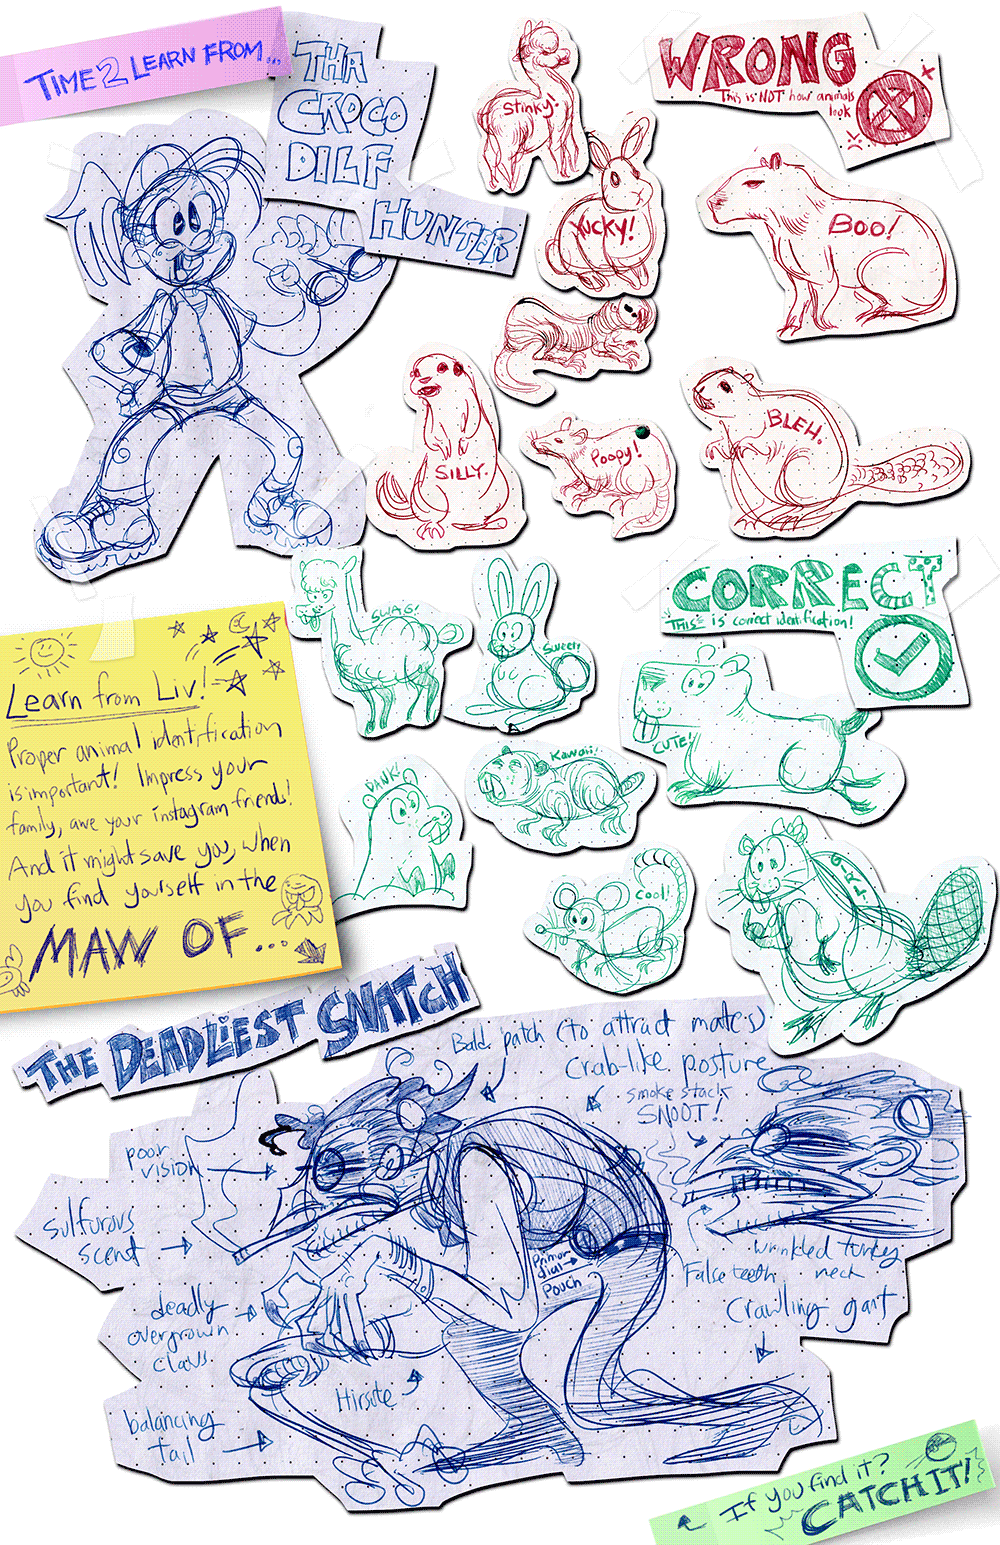 TIME 2 LEARN FROM...
THA
CROCO
DILF
HUNTER
WRONG
This is NOT how animals
look
Stinky!
YUCKY!
BOO!
SILLY.
Poopy!
BLEH.
CORRECT
THIS is correct identification!
SWAG!
SWEET!
CUTE!
DANK!
Kawaii!
COOL!
Learn from Liv!
Proper animal identification
is important! Impress your
family, awe your instagram friends!
And it might save you, when
you find yourself in the
MAW OF...
THE DEADLIEST SNATCH
Bald patch (to attract mates)
Crab-like posture
smoke stack
SNOOT!
poor
vision
sulfurous
scent
deadly
overgrown
claws
balancing
tail
Hirsute
Primor
dial
Pouch
wrinkled turkey
neck
False teeth
Crawling gait
If you find it?
CATCH IT!